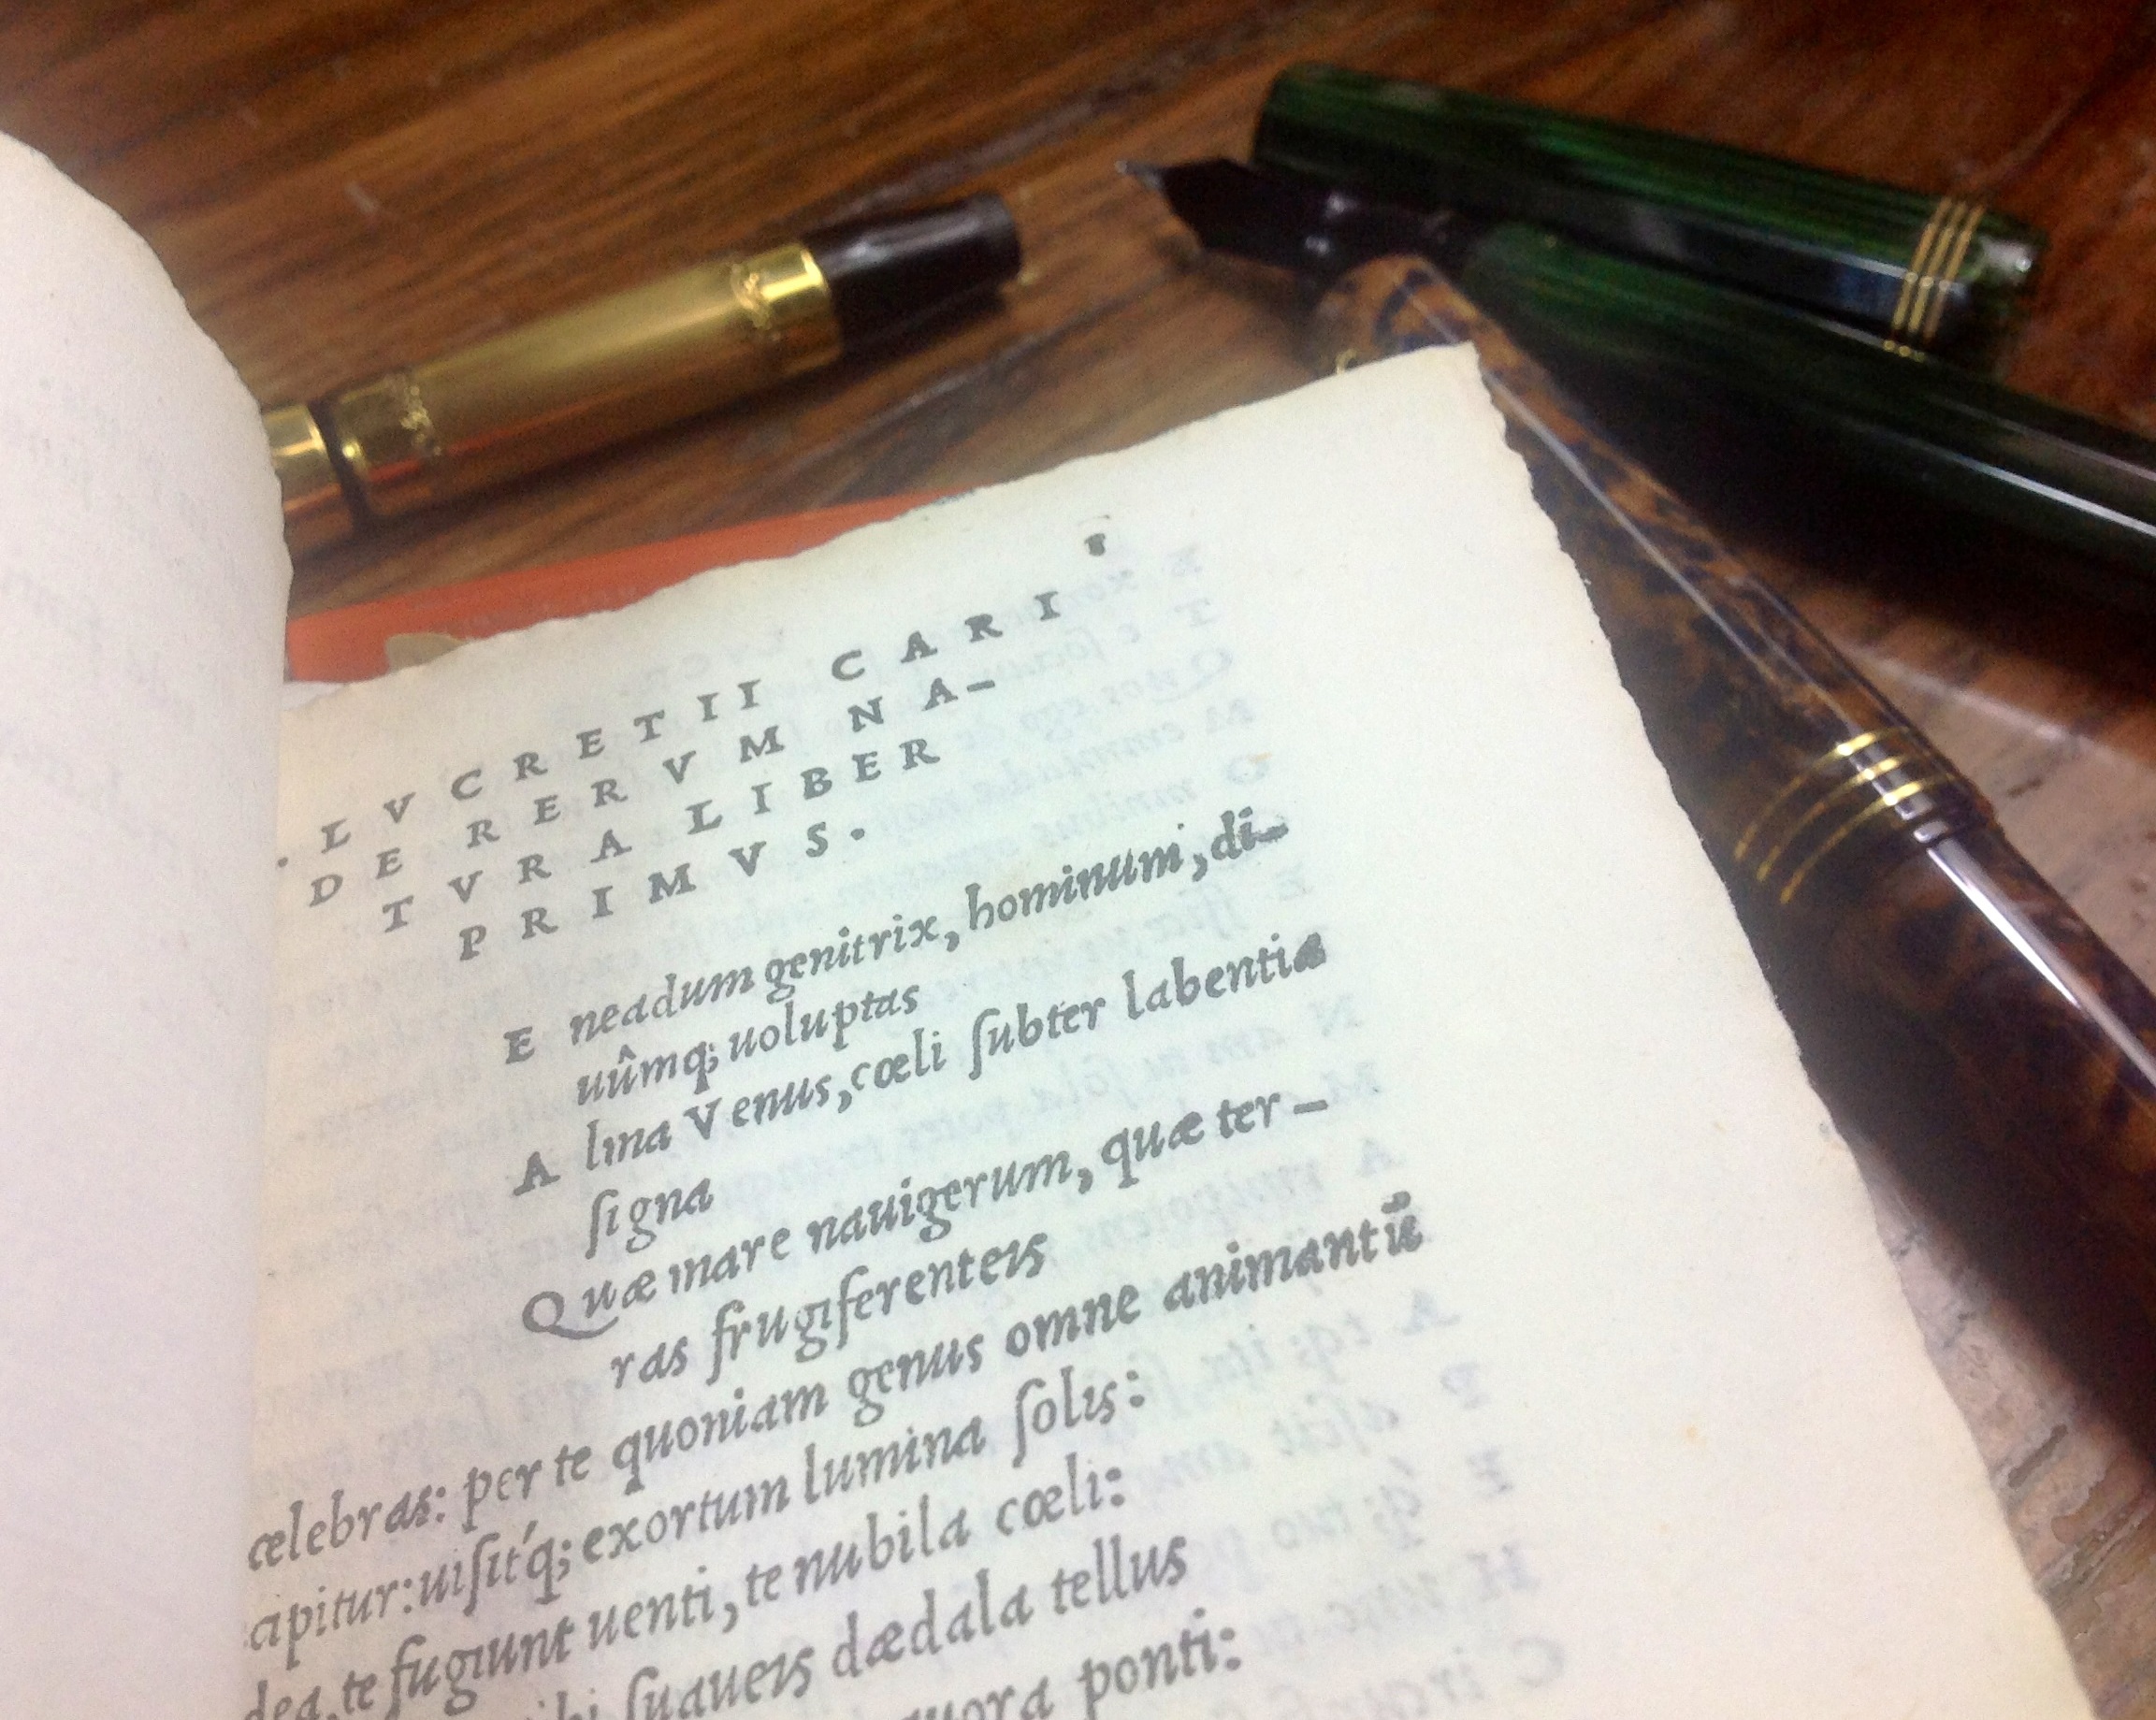 . L V C R E T I I C A R I
D E R E R V M N A-
T V R A L I B E R
P R I M V S .
E neadum genitrix, hominum, di-
uûmq; uoluptas
A lma Venus, cœli ſubter labentia
ſigna
Quæ mare nauigerum, quæ ter-
ras frugiferenteis
ælebras: per te quoniam genus omne animantũ
cipitur: uiſit'q; exortum lumina ſolis:
dea, te fugiunt uenti, te nubila cœli:
ibi ſuaueis dædala tellus
uora ponti: